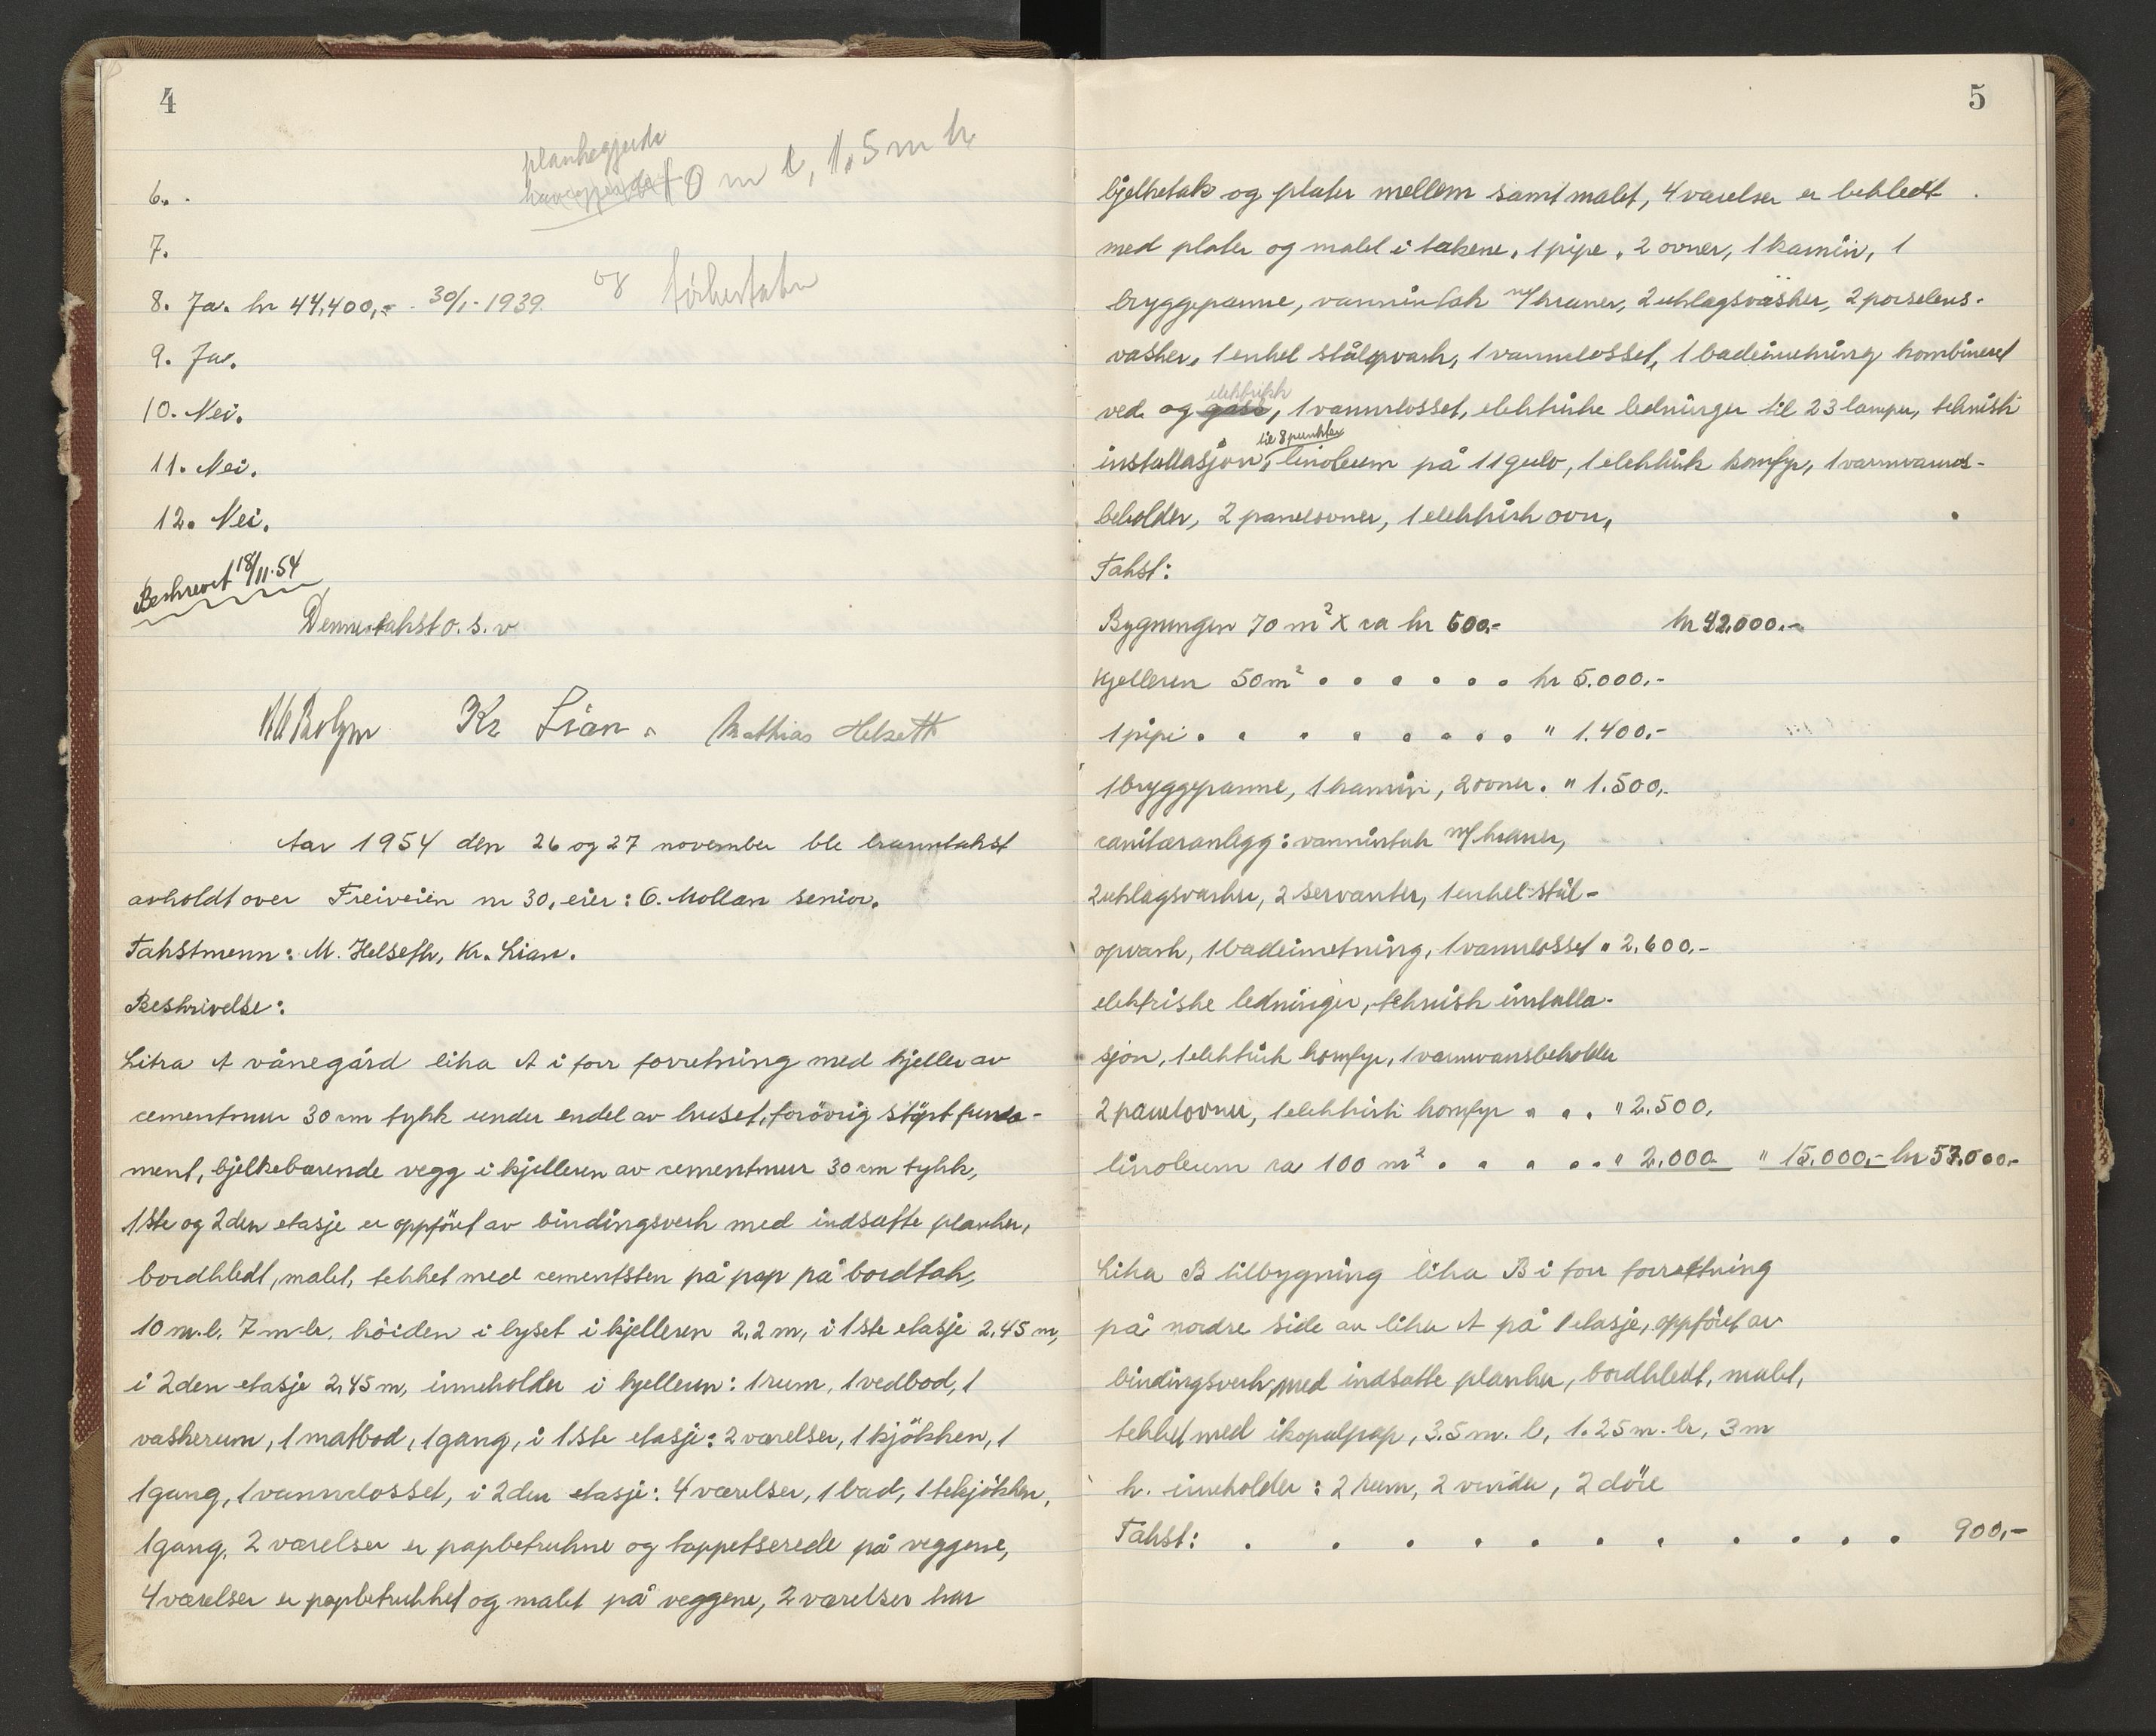 4
plankegjerde
10 m l, 1,5 m h
6.
7.
og tørkestativ
8. Ja. kr 44,400,- 30/1-1939.
9. Ja.
10. Nei.
11. Nei.
12. Nei.
Beskrevet 18/11-54
Denne takst o. s. v
Kr Lian. Mathias Helseth
Aar 1954 den 26 og 27 november ble branntakst
avholdt over Freiveien nr 30, eier: O. Mollan senior.
Takstmenn: M. Helseth, Kr. Lian.
Beskrivelse:
Litra A vånegård litra A i forr forretning med kjeller av
cementmur 30 cm tykk under endel av huset, forövrig stöpt funda-
ment, bjelkebærende vegg i kjelleren av cementmur 30 cm tykk,
1ste og 2den etasje er oppföret av bindingsverk med indsatte planker,
bordkledt, malet, tekket med cementsten på pap på bordtak,
10 m. l. 7 m. br. höiden i lyset i kjelleren 2,2 m, i 1ste etasje 2,45 m,
i 2den etasje 2,45 m, inneholder i kjelleren: 1 rum, 1 vedbod, 1
vaskerum, 1 matbod, 1 gang, i 1ste etasje: 2 værelser, 1 kjökken, 1
1 gang, 1 vannclosset, i 2den etasje: 4 værelser, 1 bad, 1 tekjökken,
1 gang, 2 værelser er papbetrukne og tappetserede på veggene,
4 værelser er papbetrukket og malet på veggene, 2 værelser har
5
bjelketak og plater mellem samt malet, 4 værelser er bekledt
med plater og malet i takene, 1 pipe, 2 ovner, 1 kamin, 1
bryggepanne, vanninntak m/kraner, 2 utslagsvasker, 2 porselens-
vasker, 1 enkel stålopvask, 1 vannclosset, 1 badeinnretning kombineret
ved og gass elektrisk, 1 vannclosset, elektriske ledninger til 23 lamper, teknisk
installasjon til 8 punkter, linoleum på 11 gulv, 1 elektrisk komfyr, 1 varmvanns-
beholder, 2 panelovner, 1 elektrisk ovn,
Takst:
Bygningen 70 m² x ca kr 600.- kr 42.000.-
Kjelleren 50 m² . . . . . . kr 5.000,-
1 pipe . . . . . . . . " 1.400,-
1 bryggepanne, 1 kamin, 2 ovner. " 1.500,-
sanitæranlegg: vanninntak m/kraner,
2 utslagsvasker, 2 servanter, 1 enkel stål-
opvask, 1 badeinnretning, 1 vannclosset " 2.600,-
elektriske ledninger, teknisk installa-
sjon, 1 elektrisk komfyr, 1 varmvansbeholder
2 panelovner, 1 elektrisk komfyr . . . " 2.500,
linoleum ca 100 m² . . . . . . " 2.000 " 15.000,- kr 57.000,-
Litra B tilbygning litra B i forr forretning
på nordre side av litra A på 1 etasje, oppföret av
bindingsverk, med indsatte planker, bordkledt, malet,
tekket med ikopalpap, 3.5 m. l, 1.25 m. br, 3 m
h. inneholder: 2 rum, 2 vinduer, 2 döre
Takst: . . . . . . . . . . . 900,-